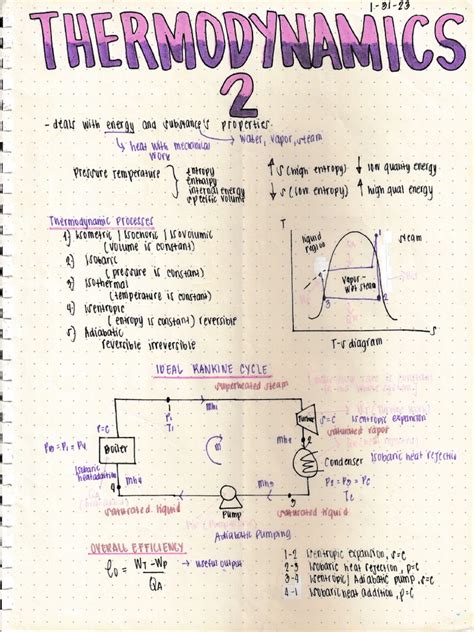 1-31-23
THERMODYNAMICS
2
- deals with energy and substance's properties.
heat with mechanical work
water, vapor, steam
Pressure temperature
entropy
enthalpy
internal energy
specific volume
↑ s (high entropy) ↓ low quality energy
↓ s (low entropy) ↑ high qual energy
Thermodynamic Processes
1) Isometric | Isochoric | Isovolumic
(volume is constant)
2) Isobaric
(pressure is constant)
3) Isothermal
(temperature is constant)
4) Isentropic
(entropy is constant) reversible
5) Adiabatic
reversible irreversible
T
liquid region
steam
1
vapor-
wet steam
3
2
s
T-s diagram
IDEAL RANKINE CYCLE
superheated steam
P1
T1
Turbine
s=C
Isentropic expansion
saturated vapor
2
Condenser
Isobaric heat rejection
P=C
Boiler
Isobaric heat addition
m
4
3
saturated liquid
Pump
saturated liquid
Adiabatic Pumping
OVERALL EFFICIENCY
WT - WP
QA
→ useful output
1-2 Isentropic expansion, s=C
2-3 Isobaric heat rejection, p=C
3-4 Isentropic| Adiabatic pump, s=C
4-1 Isobaric heat addition, p=C